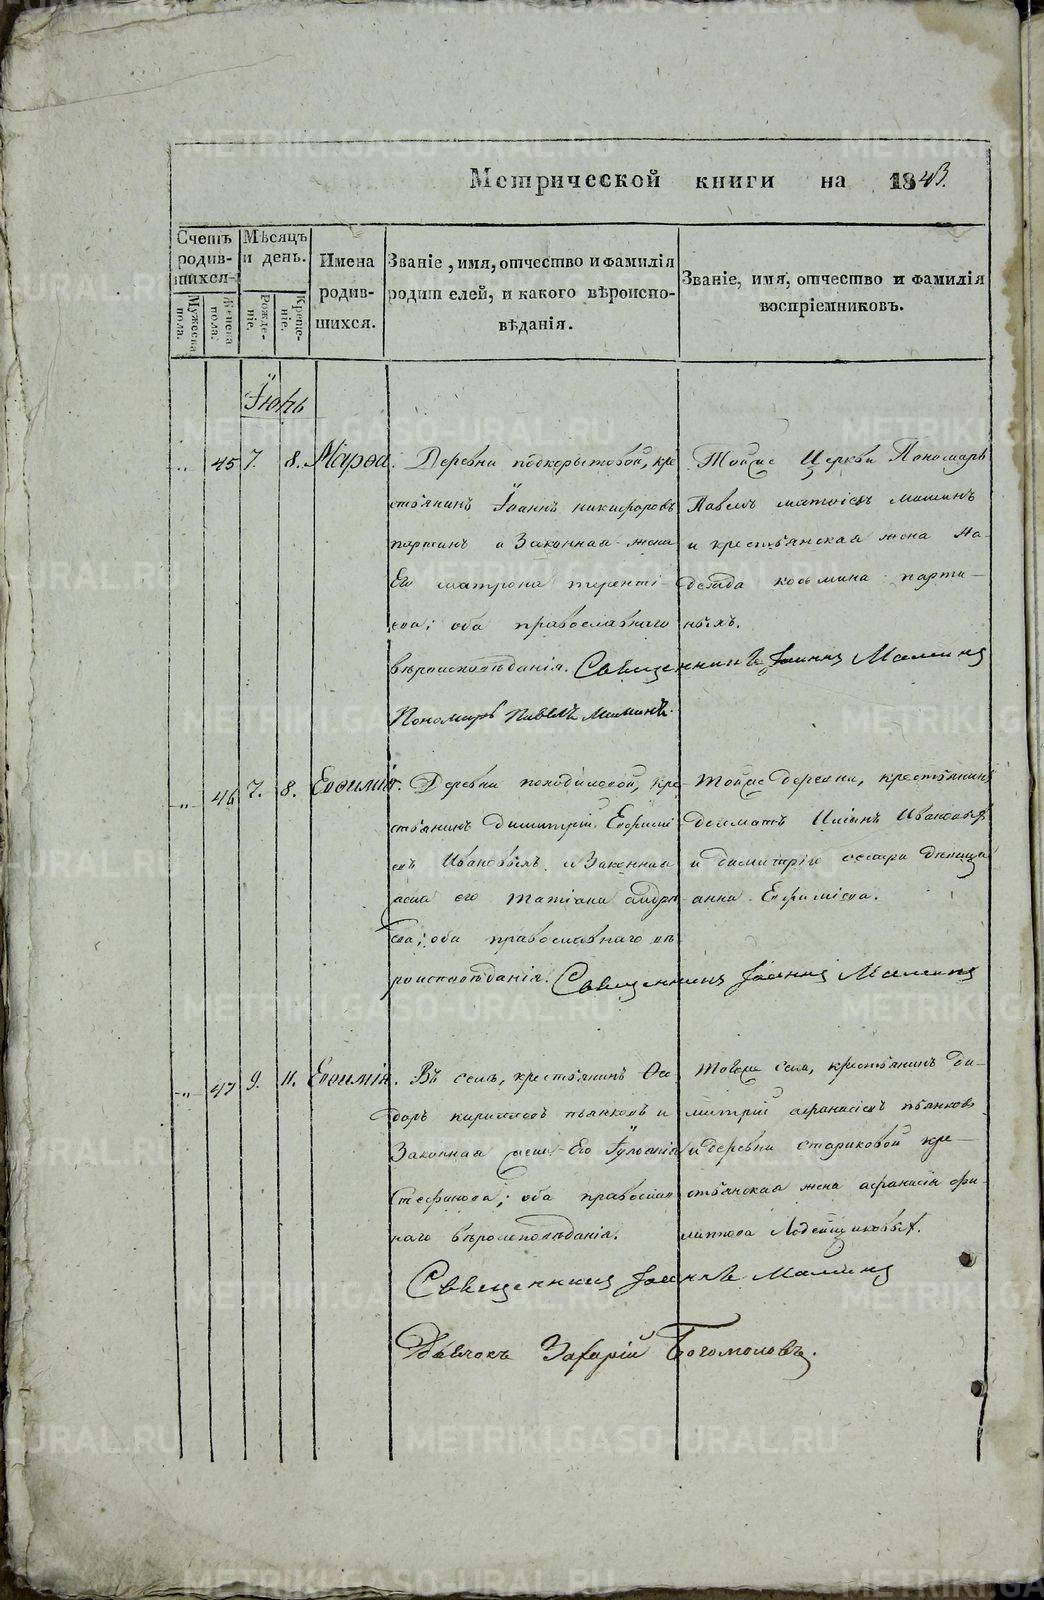 Метрической книги на 1843.
Счетъ родив-шихся
Мужеска пола.
Женска пола.
Мѣсяцъ и день.
Рожде-ніе.
Креще-ніе.
Имена родив-шихся.
Званіе, имя, отчество и фамилія родителей, и какого вѣроиспо-вѣданія.
Званіе, имя, отчество и фамилія воспріемниковъ.
Іюнь
" 45 7. 8. Марѳа.
Деревни подкорытовой, кре
стьянинъ Іоаннъ никифоровъ
партинъ и Законная жена
Его матрона теренті
ева; оба православнаго
вѣроисповѣданія. Священникъ Іоаннъ Маминъ
Пономарь Павелъ Маминъ.
Тойже Церкви Пономарь
Павелъ матвіевъ маминъ
и крестьянская жена На-
дежда косьмина парти-
ныхъ.
" 46 7. 8. Евѳимія.
Деревни походиловой, кре-
стьянинъ димитрій Евфимі
евъ Ивановыхъ и Законная
жена его татіана андре
ева; оба православнаго вѣ
роисповѣданія. Священникъ Іоаннъ Маминъ
Тойже деревни, крестьянинъ
Ивановыхъ
и димитрію сестра дѣвица
анна Евфиміева.
" 47 9. 11. Евѳимія.
Въ селѣ, крестьянинъ Ѳе
доръ кириловъ пьянковъ и
Законная жена Его Іуліанія
Стефанова; оба православ
наго вѣроисповѣданія.
Тогоже села, крестьянинъ ди-
митрій афанасіевъ пьянковъ
и деревни стариковой кре-
стьянская жена афанасія фи-
липпова Лодейщиковыхъ.
Священникъ Іоаннъ Маминъ
Дьячокъ Захарій Богомоловъ.
METRIKI.GASO-URAL.RU